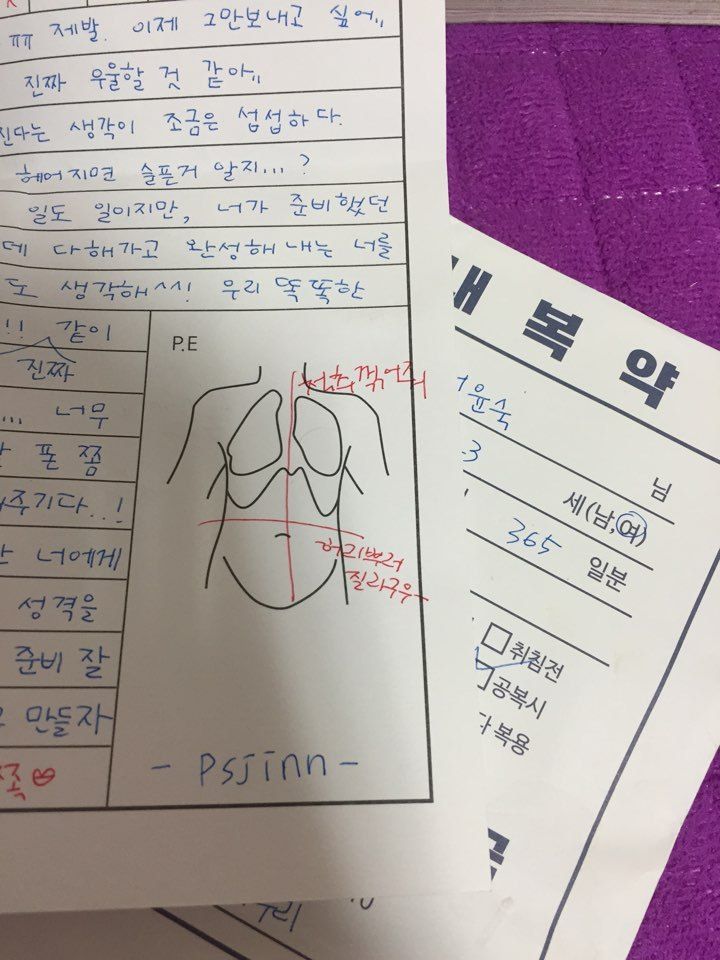 ㅠㅠ 제발. 이제 그만보내고 싶어,,
진짜 우울할 것 같아,,
진다는 생각이 조금은 섭섭하다.
헤어지면 슬픈거 알지...?
일도 일이지만, 너가 준비했던
데 다해가고 완성해 내는 너를
도 생각해^^! 우리 똑똑한
!! 같이
진짜
... 너무
폰 쫌
주기다..!
너에게
성격을
준비 잘
만들자
P.E
꺾어줘
허리뿌러
질라구우~
- Psjinn -
내복약
윤숙 님
3 세(남,여)
365 일분
취침전
공복시
복용